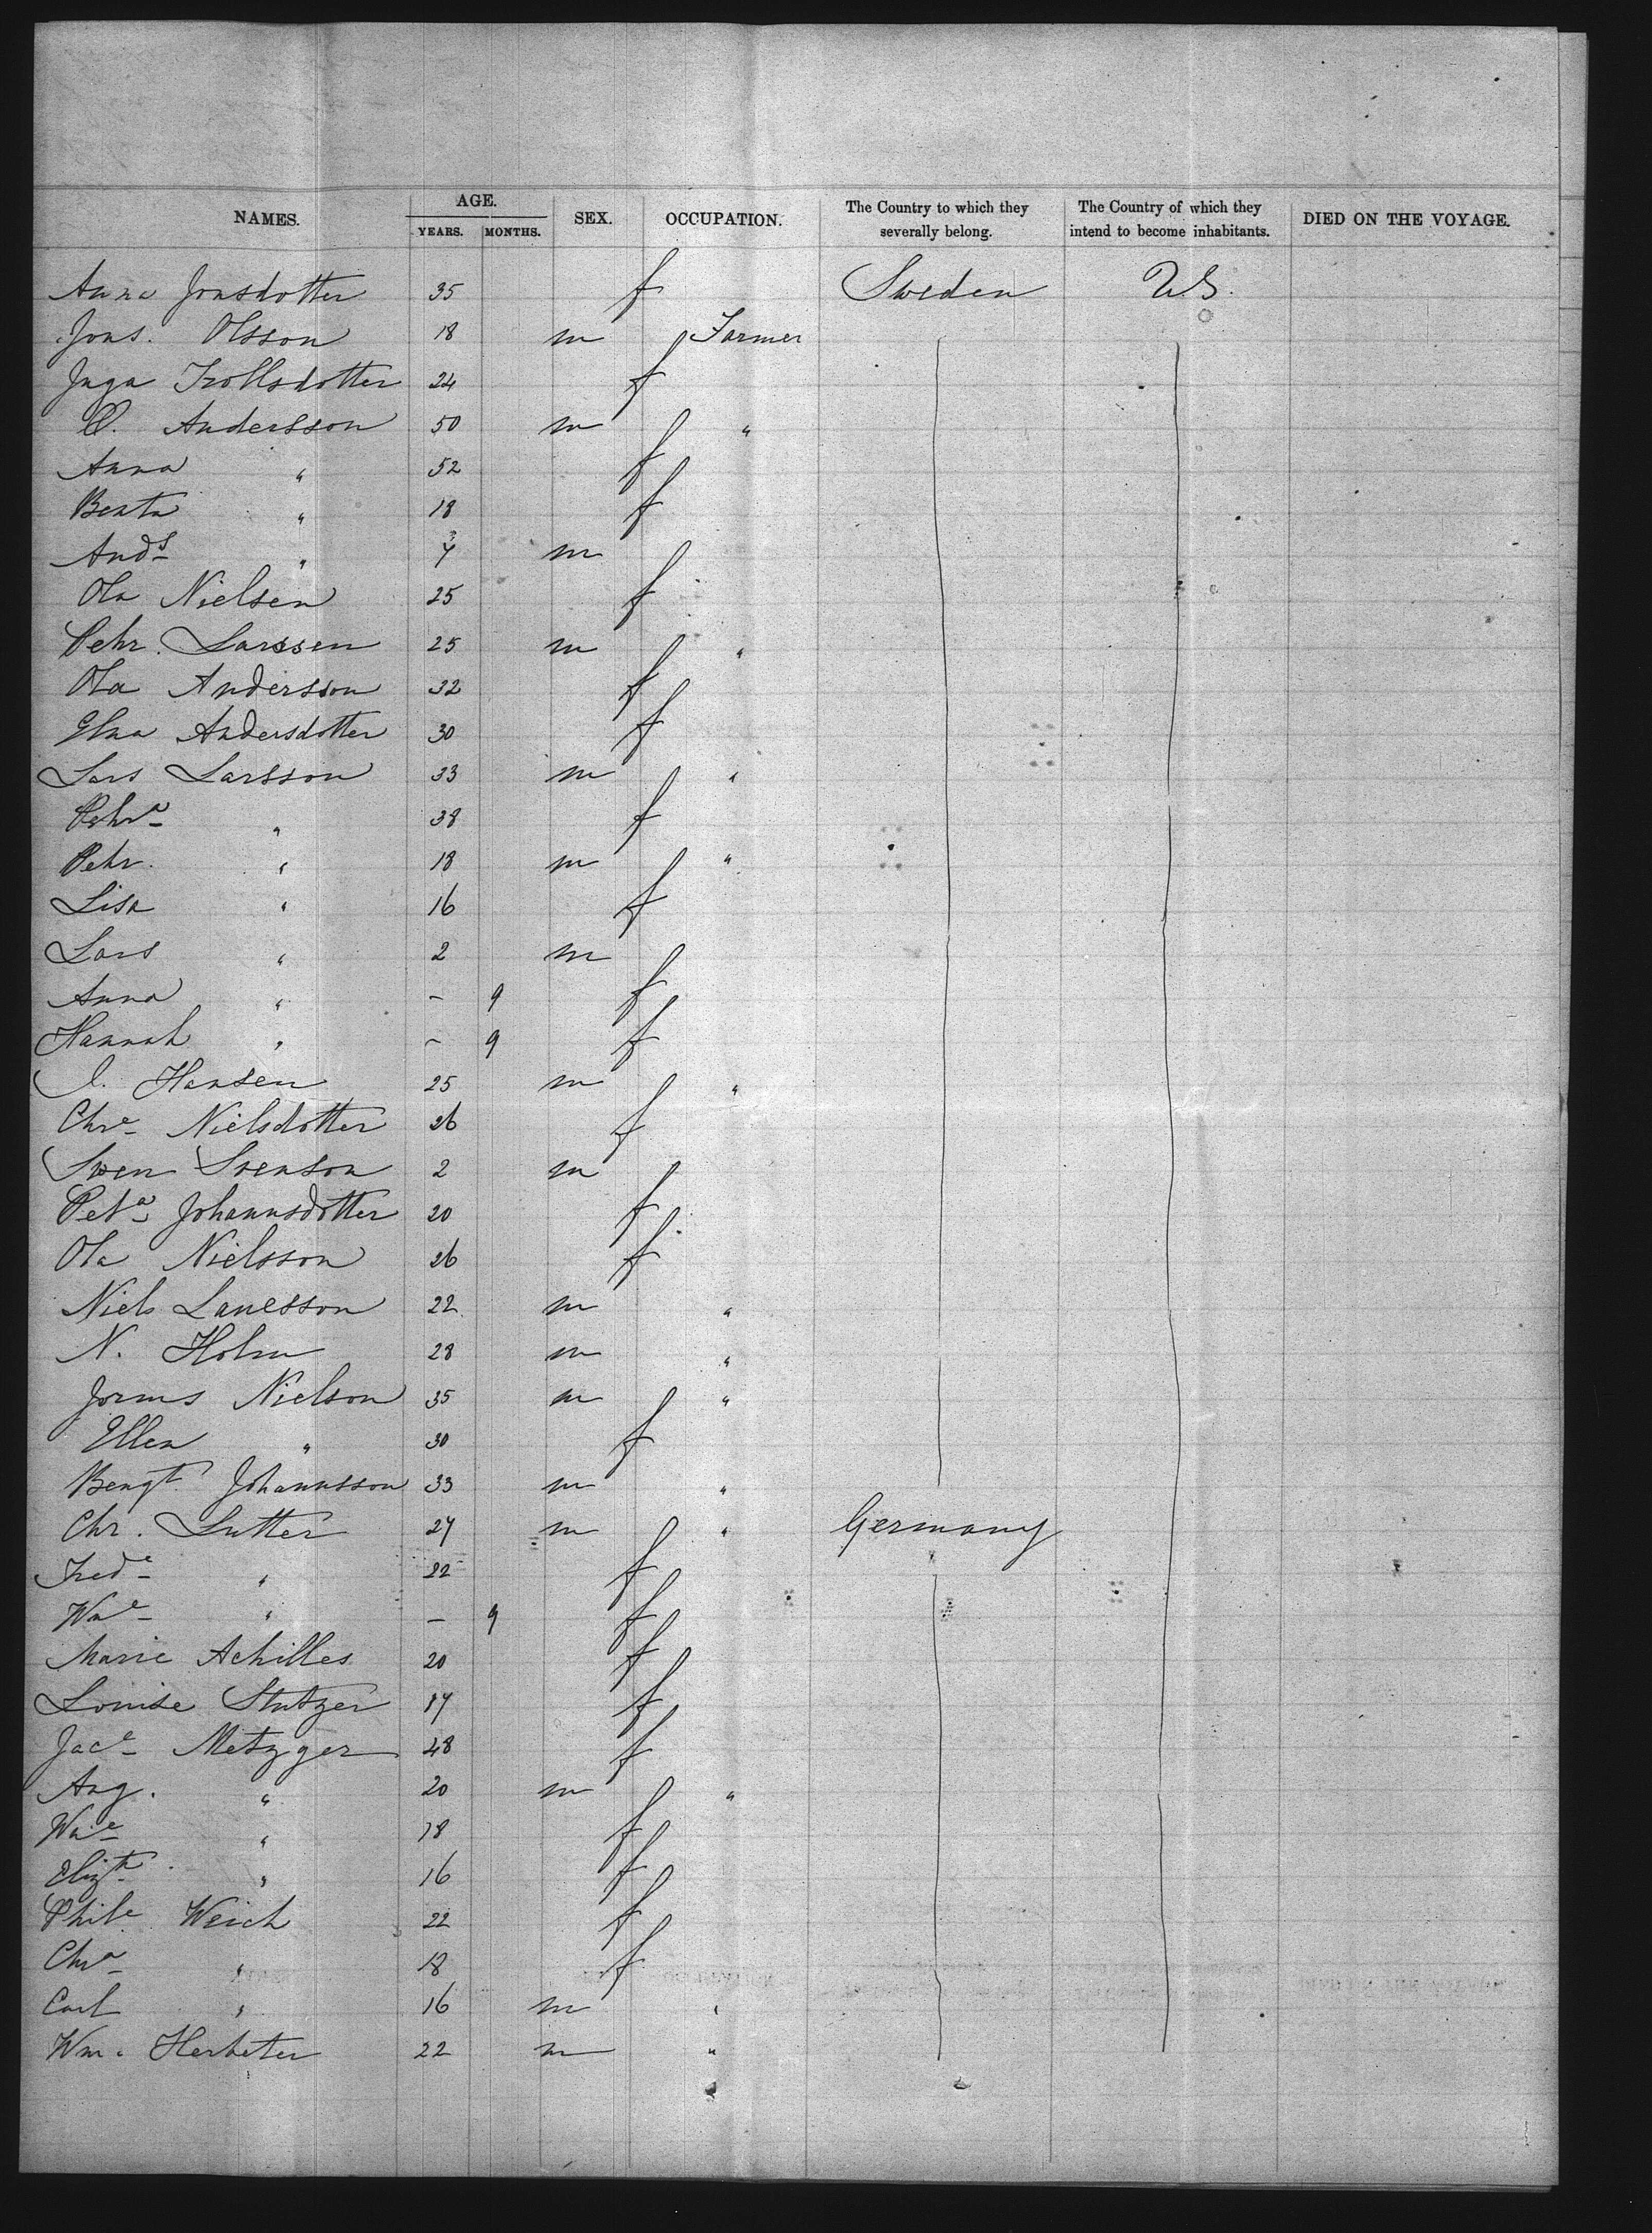 NAMES. AGE. YEARS. MONTHS. SEX. OCCUPATION. The Country to which they severally belong. The Country of which they intend to become inhabitants. DIED ON THE VOYAGE.
Anna Jonsdotter 35 f Sweden U.S.
Jons. Olsson 18 m Farmer
Inga Trollsdotter 24 f
P. Andersson 50 m "
Anna " 52 f
Benta " 18 f
Ands " 7 m
Ola Nielsen 25 f
Pehr. Larssen 25 m "
Ola Andersson 32 f
Elna Andersdotter 30 f
Lars Larsson 33 m "
Pehra " 38 f
Pehr. " 18 m "
Lisa " 16 f
Lars " 2 m
Anna " - 9 f
Hannah " - 9 f
J. Hansen 25 m "
Chre Nielsdotter 26 f
Sven Svenson 2 m
Peta Johannsdotter 20 f
Ola Nielsson 26 f
Niels Lanesson 22 m "
N. Holm 28 m "
Jorms Nielson 35 m "
Ellen " 30 f
Bengt Johannsson 33 m "
Chr. Lutter 27 m " Germany
Frede " 22 f
Wme " - 9 f
Marie Achilles 20 f
Louise Stutzer 17 f
Jace Metzger 48 f
Aug. " 20 m "
Wme " 18 f
Elizth " 16 f
Phile Weich 22 f
Chra " 18 f
Carl " 16 m "
Wm. Herbeter 22 m "